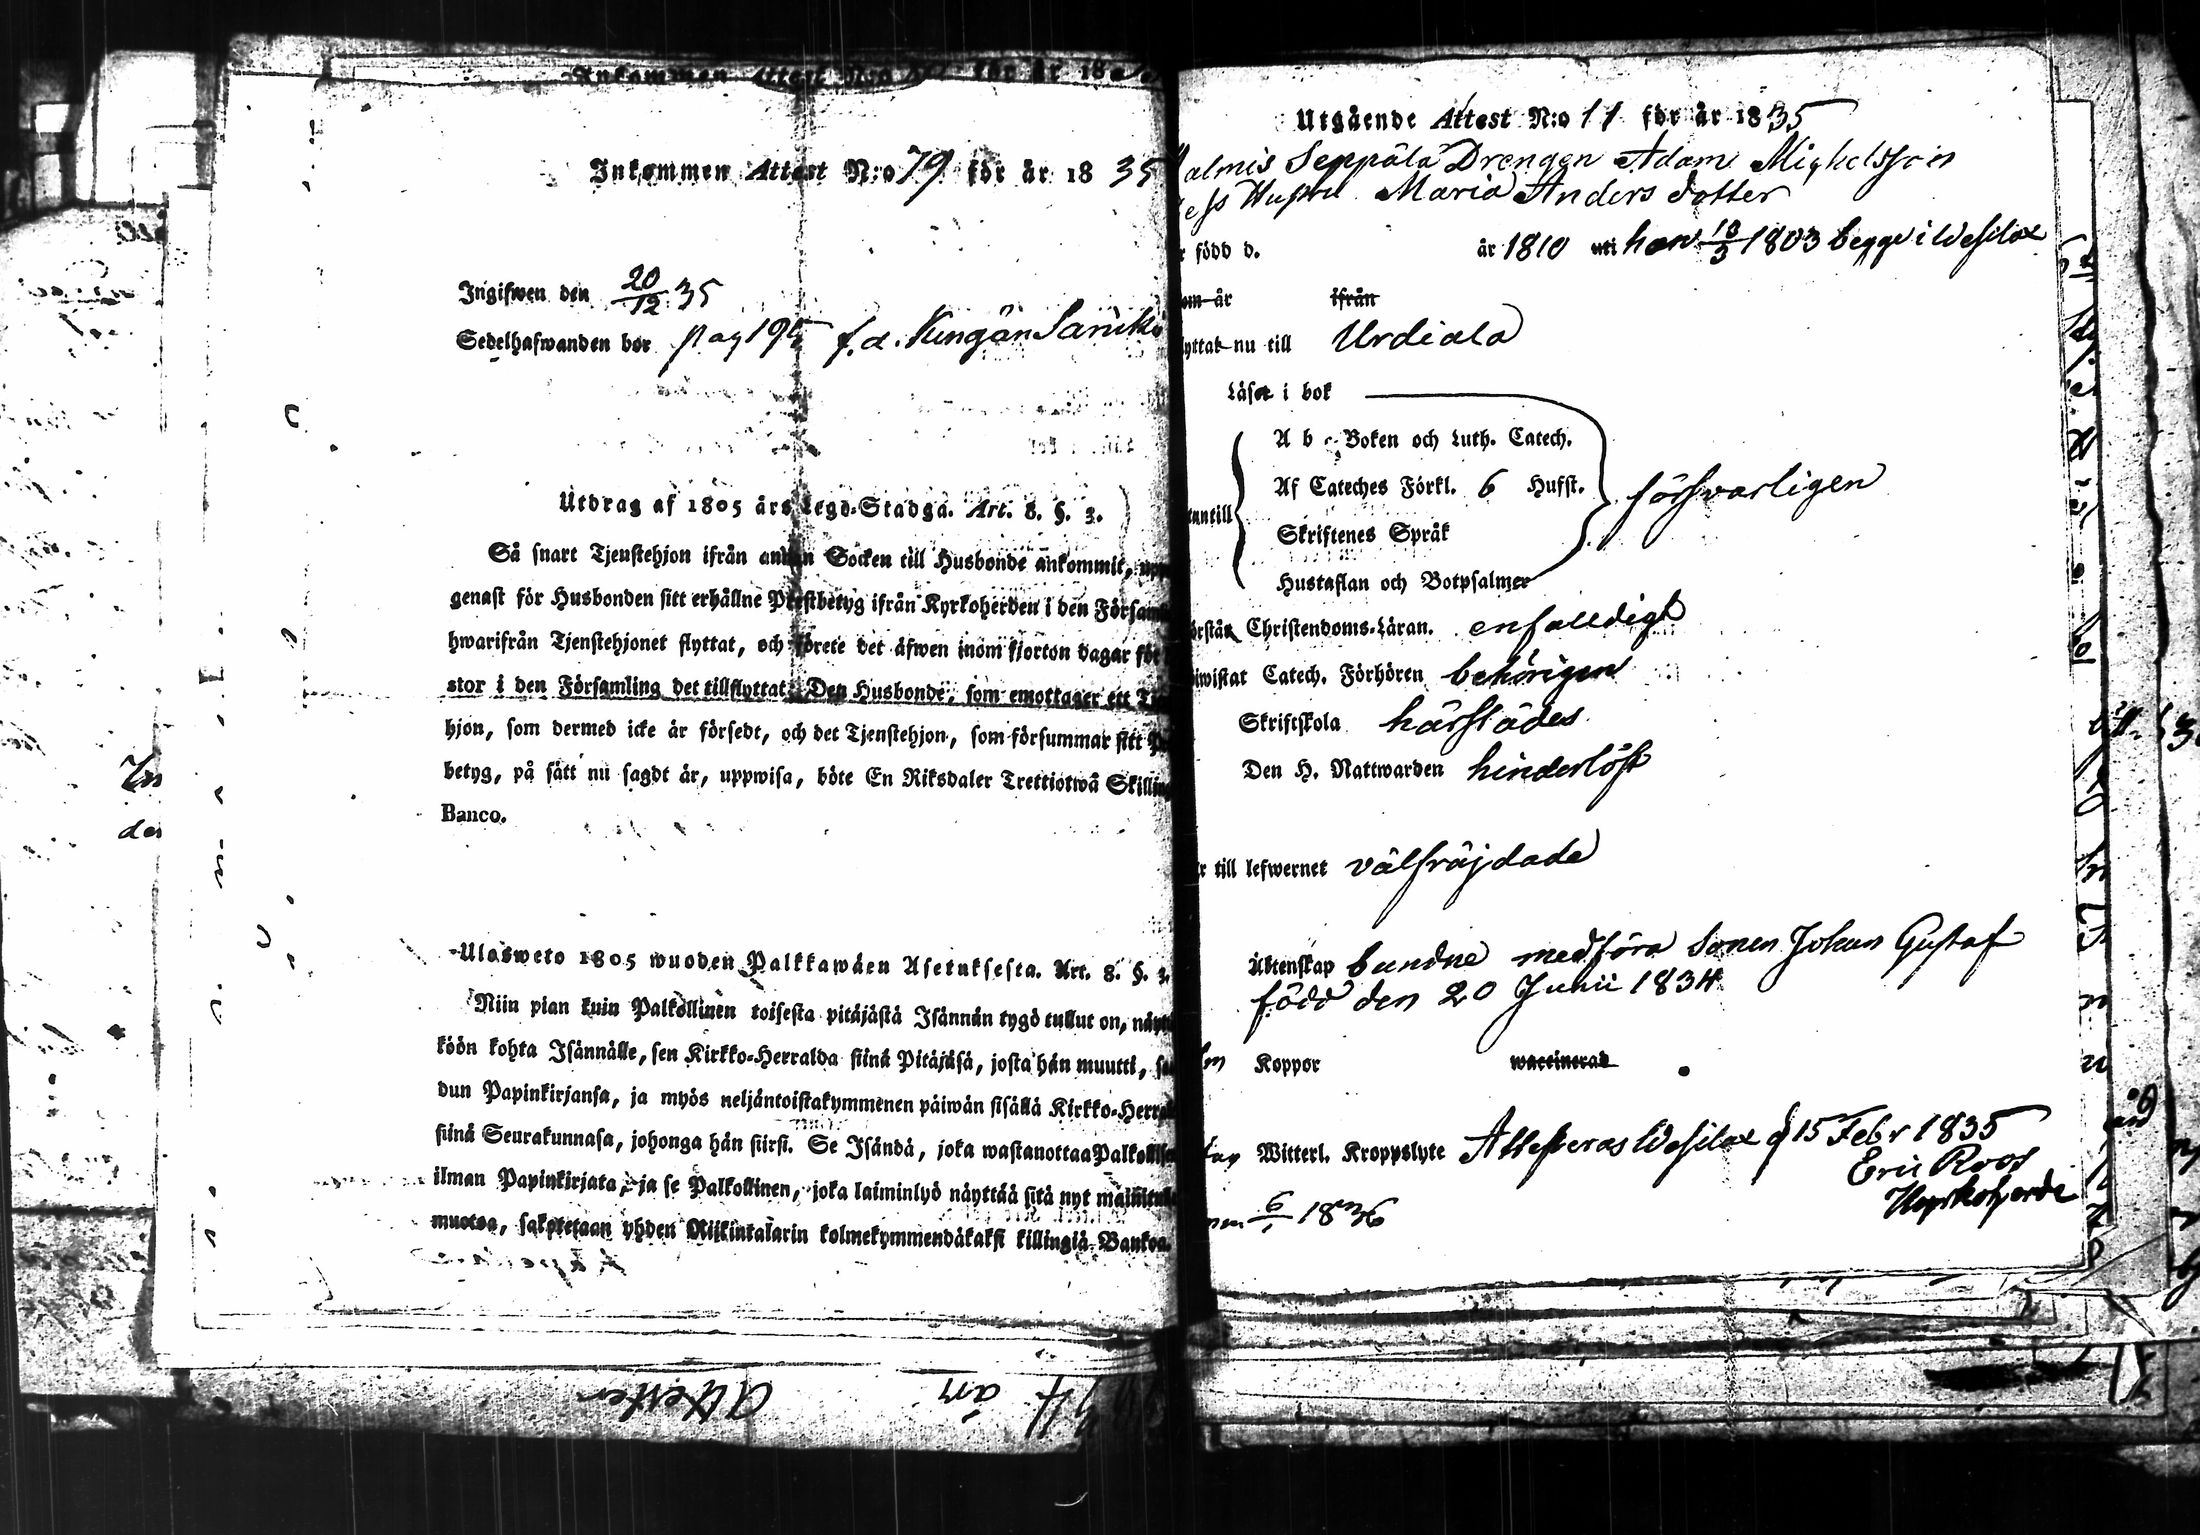 Inkommen Attest N:o 79 för år 1835
Ingifwen den 20/12 35
Sedelhafwanden bor pag 195 f.d.
Utdrag af 1805 års Legd-Stadga. Art. 8. §. 3.
Så snart Tjenstehjon ifrån annan Socken till Husbonde ankommit, upp
genast för Husbonden sitt erhållne Prestbetyg ifrån Kyrkoherden i den Försam
hwarifrån Tjenstehjonet flyttat, och förete det äfwen inom fjorton dagar för
stor i den Församling det tillflyttat. Den Husbonde, som emottager ett
hjon, som dermed icke är försedt, och det Tjenstehjon, som försummar sitt
betyg, på sätt nu sagdt är, uppwisa, böte En Riksdaler Trettiotwå Skilling
Banco.
Ulosweto 1805 wuoden Palkkawäen Asetuksesta. Art. 8. §. 3.
Niin pian kuin Palkollinen toisesta pitäjästä Isännän tygö tullut on, näyt
köön kohta Isännälle, sen Kirkko-Herralda siinä Pitäjäsä, josta hän muutti, sa
dun Papinkirjansa, ja myös neljäntoistakymmenen päiwän sisällä Kirkko-Herra
siinä Seurakunnasa, johonga hän siirsi. Se Isändä, joka wastanottaa Palkollise
ilman Papinkirjata, ja se Palkollinen, joka laiminlyö näyttää sitä nyt mainitulla
muotoa, sakotetaan yhden Riikintalarin kolmekymmendäkaksi killingiä Bankoa.
Utgående Attest N:o 11 för år 1835
almis Seppälä Drengen Adam Mickelsson
ess Hustru Maria Anders dotter
född d. år 1810 uti han 13/3 1803 begge i Wesilax
om år ifrån
yttat nu till Urdiala
Läser i bok
A b c Boken och Luth. Catech.
Af Cateches Förkl. 6 Hufst. försvarligen
utantill
Skriftenes Språk
Hustaflan och Botpsalmer
örstår Christendoms-Läran. enfalldigt
iwistat Catech. Förhören behörigen
Skriftskola härstädes
Den H. Nattwarden hinderlöst
r till lefwernet välfräjdade
Äktenskap bundne medföra sonen Johan Gustaf
född den 20 Junii 1834
Koppor waccinerad
Witterl. Kroppslyte Attesteras Wesilax d 15 Febr 1835
Eric Roos
Kyrkoherde
6/1 1836
Attester